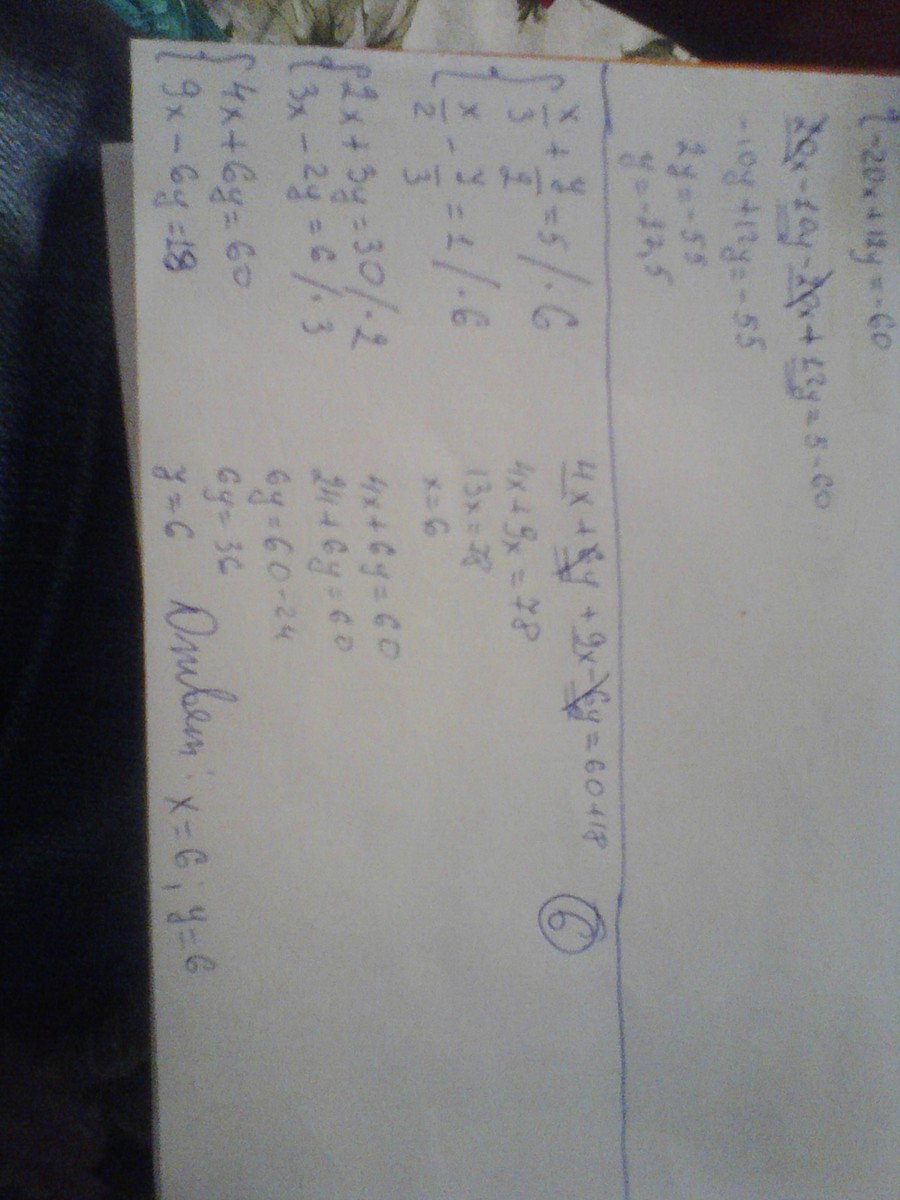 {-20x+12y=-60
20x-10y-20x+12y=5-60
-10y+12y=-55
2y=-55
y=-27,5
{x/3 + y/2 = 5 /·6
x/2 - y/3 = 1 /·6
{2x+3y=30 /·2
3x-2y=6 /·3
{4x+6y=60
9x-6y=18
4x+6y+9x-6y=60+18
4x+9x=78
13x=78
x=6
4x+6y=60
24+6y=60
6y=60-24
6y=36
y=6 Ответ: x=6; y=6
6